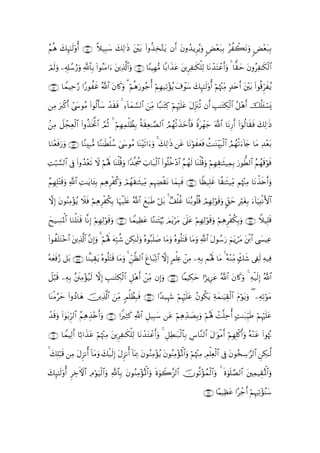 بِبَعْضٍ وَنَكْفُرُ بِبَعْضٍ وَيُرِيدُونَ أَن يَتَّخِذُوا۟ بَيْنَ ذَٰلِكَ سَبِيلًا ﴿١٥٠﴾ أُو۟لَـٰٓئِكَ هُمُ
ٱلْكَـٰفِرُونَ حَقًّا ۚ وَأَعْتَدْنَا لِلْكَـٰفِرِينَ عَذَابًا مُّهِينًا ﴿١٥١﴾ وَٱلَّذِينَ ءَامَنُوا۟ بِٱللَّهِ وَرُسُلِهِۦ وَلَمْ
يُفَرِّقُوا۟ بَيْنَ أَحَدٍ مِّنْهُمْ أُو۟لَـٰٓئِكَ سَوْفَ يُؤْتِيهِمْ أُجُورَهُمْ ۗ وَكَانَ ٱللَّهُ غَفُورًا رَّحِيمًا ﴿١٥٢﴾
يَسْـَٔلُكَ أَهْلُ ٱلْكِتَـٰبِ أَن تُنَزِّلَ عَلَيْهِمْ كِتَـٰبًا مِّنَ ٱلسَّمَآءِ ۚ فَقَدْ سَأَلُوا۟ مُوسَىٰٓ أَكْبَرَ مِن
ذَٰلِكَ فَقَالُوٓا۟ أَرِنَا ٱللَّهَ جَهْرَةً فَأَخَذَتْهُمُ ٱلصَّـٰعِقَةُ بِظُلْمِهِمْ ۚ ثُمَّ ٱتَّخَذُوا۟ ٱلْعِجْلَ مِنۢ
بَعْدِ مَا جَآءَتْهُمُ ٱلْبَيِّنَـٰتُ فَعَفَوْنَا عَن ذَٰلِكَ ۚ وَءَاتَيْنَا مُوسَىٰ سُلْطَـٰنًا مُّبِينًا ﴿١٥٣﴾ وَرَفَعْنَا
فَوْقَهُمُ ٱلطُّورَ بِمِيثَـٰقِهِمْ وَقُلْنَا لَهُمُ ٱدْخُلُوا۟ ٱلْبَابَ سُجَّدًا وَقُلْنَا لَهُمْ لَا تَعْدُوا۟ فِى ٱلسَّبْتِ
وَأَخَذْنَا مِنْهُم مِّيثَـٰقًا غَلِيظًا ﴿١٥٤﴾ فَبِمَا نَقْضِهِم مِّيثَـٰقَهُمْ وَكُفْرِهِم بِـَٔايَـٰتِ ٱللَّهِ وَقَتْلِهِمُ
ٱلْأَنۢبِيَآءَ بِغَيْرِ حَقٍّ وَقَوْلِهِمْ قُلُوبُنَا غُلْفٌۢ ۚ بَلْ طَبَعَ ٱللَّهُ عَلَيْهَا بِكُفْرِهِمْ فَلَا يُؤْمِنُونَ إِلَّا
قَلِيلًا ﴿١٥٥﴾ وَبِكُفْرِهِمْ وَقَوْلِهِمْ عَلَىٰ مَرْيَمَ بُهْتَـٰنًا عَظِيمًا ﴿١٥٦﴾ وَقَوْلِهِمْ إِنَّا قَتَلْنَا ٱلْمَسِيحَ
عِيسَى ٱبْنَ مَرْيَمَ رَسُولَ ٱللَّهِ وَمَا قَتَلُوهُ وَمَا صَلَبُوهُ وَلَـٰكِن شُبِّهَ لَهُمْ ۚ وَإِنَّ ٱلَّذِينَ ٱخْتَلَفُوا۟
فِيهِ لَفِى شَكٍّ مِّنْهُ ۚ مَا لَهُم بِهِۦ مِنْ عِلْمٍ إِلَّا ٱتِّبَاعَ ٱلظَّنِّ ۚ وَمَا قَتَلُوهُ يَقِينًۢا ﴿١٥٧﴾ بَل رَّفَعَهُ
ٱللَّهُ إِلَيْهِ ۚ وَكَانَ ٱللَّهُ عَزِيزًا حَكِيمًا ﴿١٥٨﴾ وَإِن مِّنْ أَهْلِ ٱلْكِتَـٰبِ إِلَّا لَيُؤْمِنَنَّ بِهِۦ قَبْلَ
مَوْتِهِۦ ۖ وَيَوْمَ ٱلْقِيَـٰمَةِ يَكُونُ عَلَيْهِمْ شَهِيدًا ﴿١٥٩﴾ فَبِظُلْمٍ مِّنَ ٱلَّذِينَ هَادُوا۟ حَرَّمْنَا
عَلَيْهِمْ طَيِّبَـٰتٍ أُحِلَّتْ لَهُمْ وَبِصَدِّهِمْ عَن سَبِيلِ ٱللَّهِ كَثِيرًا ﴿١٦٠﴾ وَأَخْذِهِمُ ٱلرِّبَوٰا۟ وَقَدْ
نُهُوا۟ عَنْهُ وَأَكْلِهِمْ أَمْوَٰلَ ٱلنَّاسِ بِٱلْبَـٰطِلِ ۚ وَأَعْتَدْنَا لِلْكَـٰفِرِينَ مِنْهُمْ عَذَابًا أَلِيمًا ﴿١٦١﴾
لَّـٰكِنِ ٱلرَّٰسِخُونَ فِى ٱلْعِلْمِ مِنْهُمْ وَٱلْمُؤْمِنُونَ يُؤْمِنُونَ بِمَآ أُنزِلَ إِلَيْكَ وَمَآ أُنزِلَ مِن قَبْلِكَ ۚ
وَٱلْمُقِيمِينَ ٱلصَّلَوٰةَ ۚ وَٱلْمُؤْتُونَ ٱلزَّكَوٰةَ وَٱلْمُؤْمِنُونَ بِٱللَّهِ وَٱلْيَوْمِ ٱلْـَٔاخِرِ أُو۟لَـٰٓئِكَ
سَنُؤْتِيهِمْ أَجْرًا عَظِيمًا ﴿١٦٢﴾